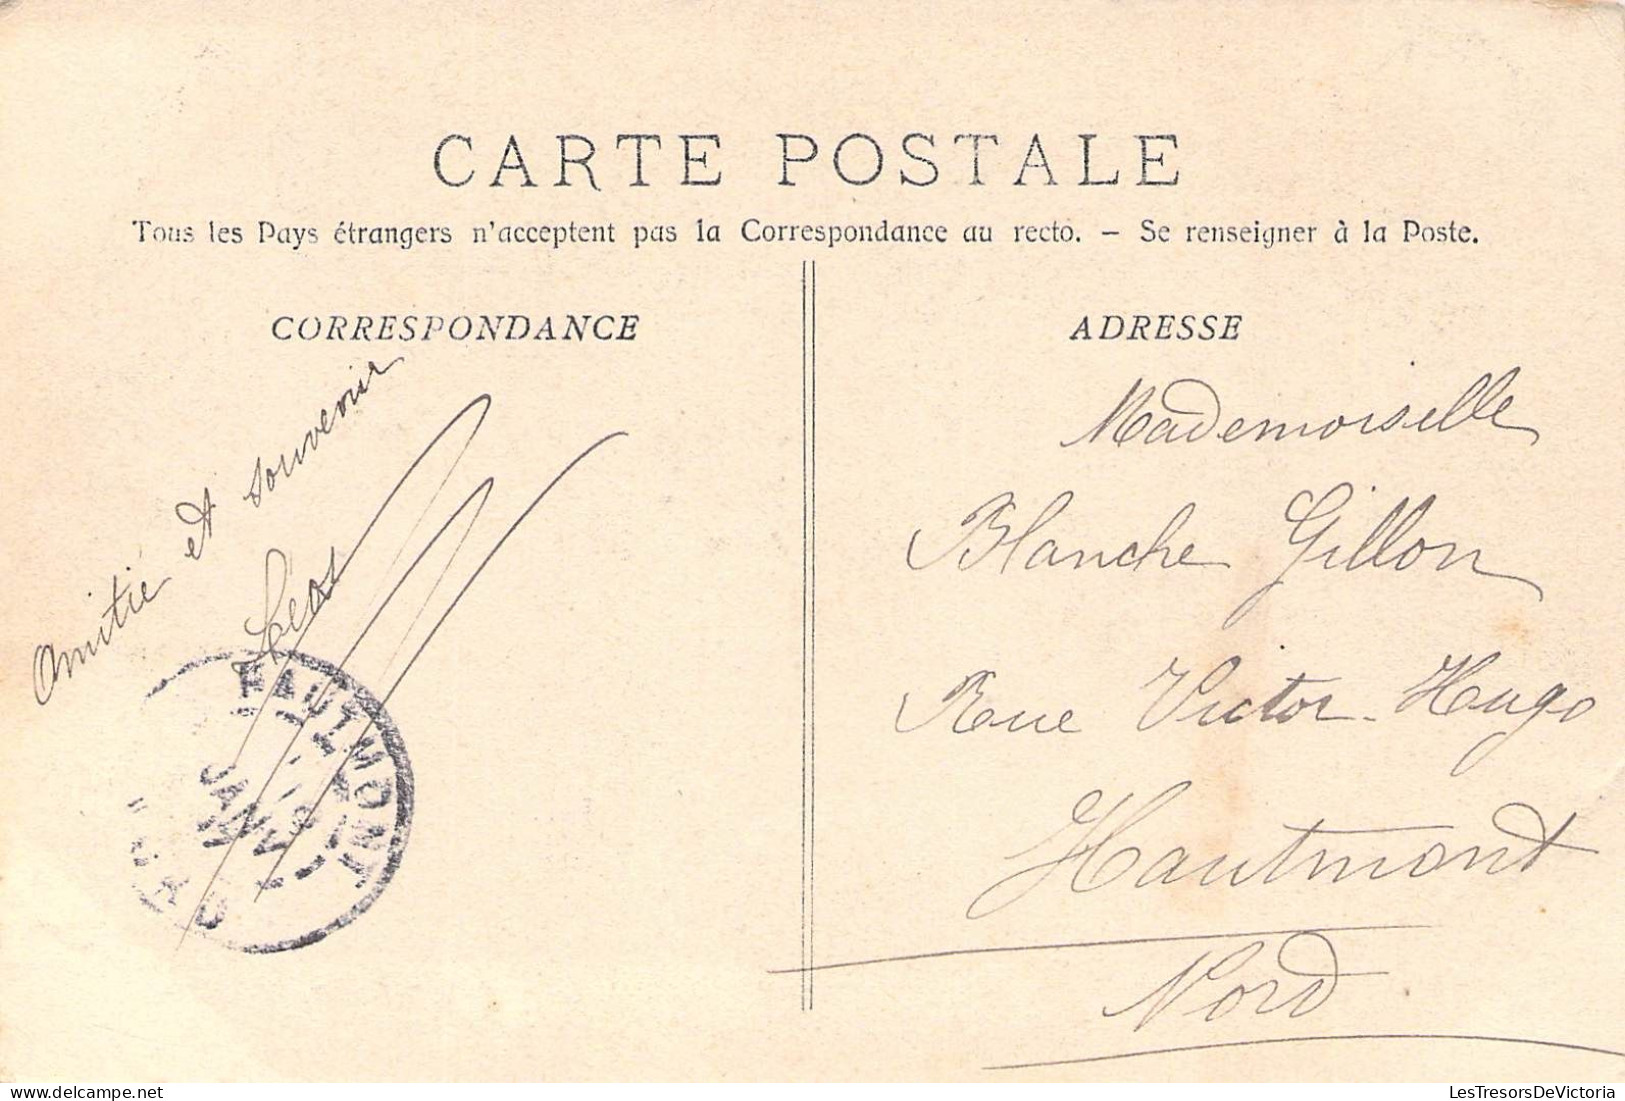 CARTE POSTALE
Tous les Pays étrangers n'acceptent pas la Correspondance au recto. — Se renseigner à la Poste.
CORRESPONDANCE
Amitié et souvenir
HAUTMONT
JANV
NORD
ADRESSE
Mademoiselle
Blanche Gillon
Rue Victor-Hugo
Hautmont
Nord
LesTresorsDeVictoria